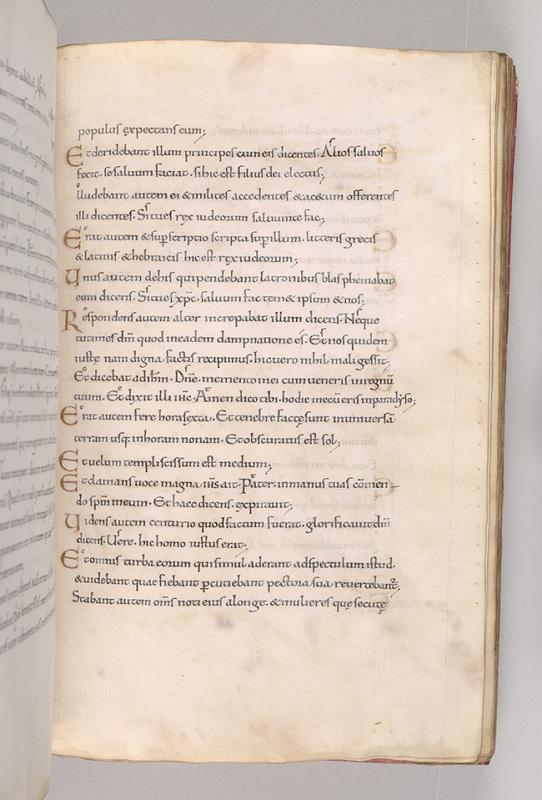 populus expectans eum;
Et deridebant illum principes cum eis dicentes. Alios saluos
fecit. se saluum faciat. si hic est filius dei electus;
Illudebant autem ei & milites accedentes & ac&um offerentes
illi dicentes. Si tu es rex iudeorum saluum te fac;
Erat autem & sup scriptio scripta sup illum. litteris grecis
& latinis & hebraicis hic est rex iudeorum;
Unus autem de his qui pendebant latronibus blasphemabat
eum dicens. Si tu es xpc. saluum fac tem& ipsum & nos;
Respondens autem alter increpabat illum dicens. Neque
tu times dm quod in eadem dampnatione es. Et nos quidem
iuste nam digna factis recipimus. hic uero nihil mali gessit.
Et dicebat ad ihm. Dne. memento mei cum ueneris in regnū
tuum. Et dixit illi ihc. Amen dico tibi. hodie mecū eris in paradyso;
Erat autem fere hora sexta. Et tenebre facte sunt in uniuersā
terram usq; in horam nonam. Et obscuratus est sol;
Et uelum templi scissum est medium;
Et clamans uoce magna ihs ait. Pater. in manus tuas cōmen-
do spm meum. Et haec dicens. expirauit;
Uidens autem centurio quod factum fuerat. glorificauit dm
dicens. Uere. hic homo iustus erat;
Et omnis turba eorum qui simul aderant ad spectulum istud.
& uidebant quae fiebant pcutiebant pectora sua reuertebant;
Stabant autem oms noti eius a longe. & mulieres que secute